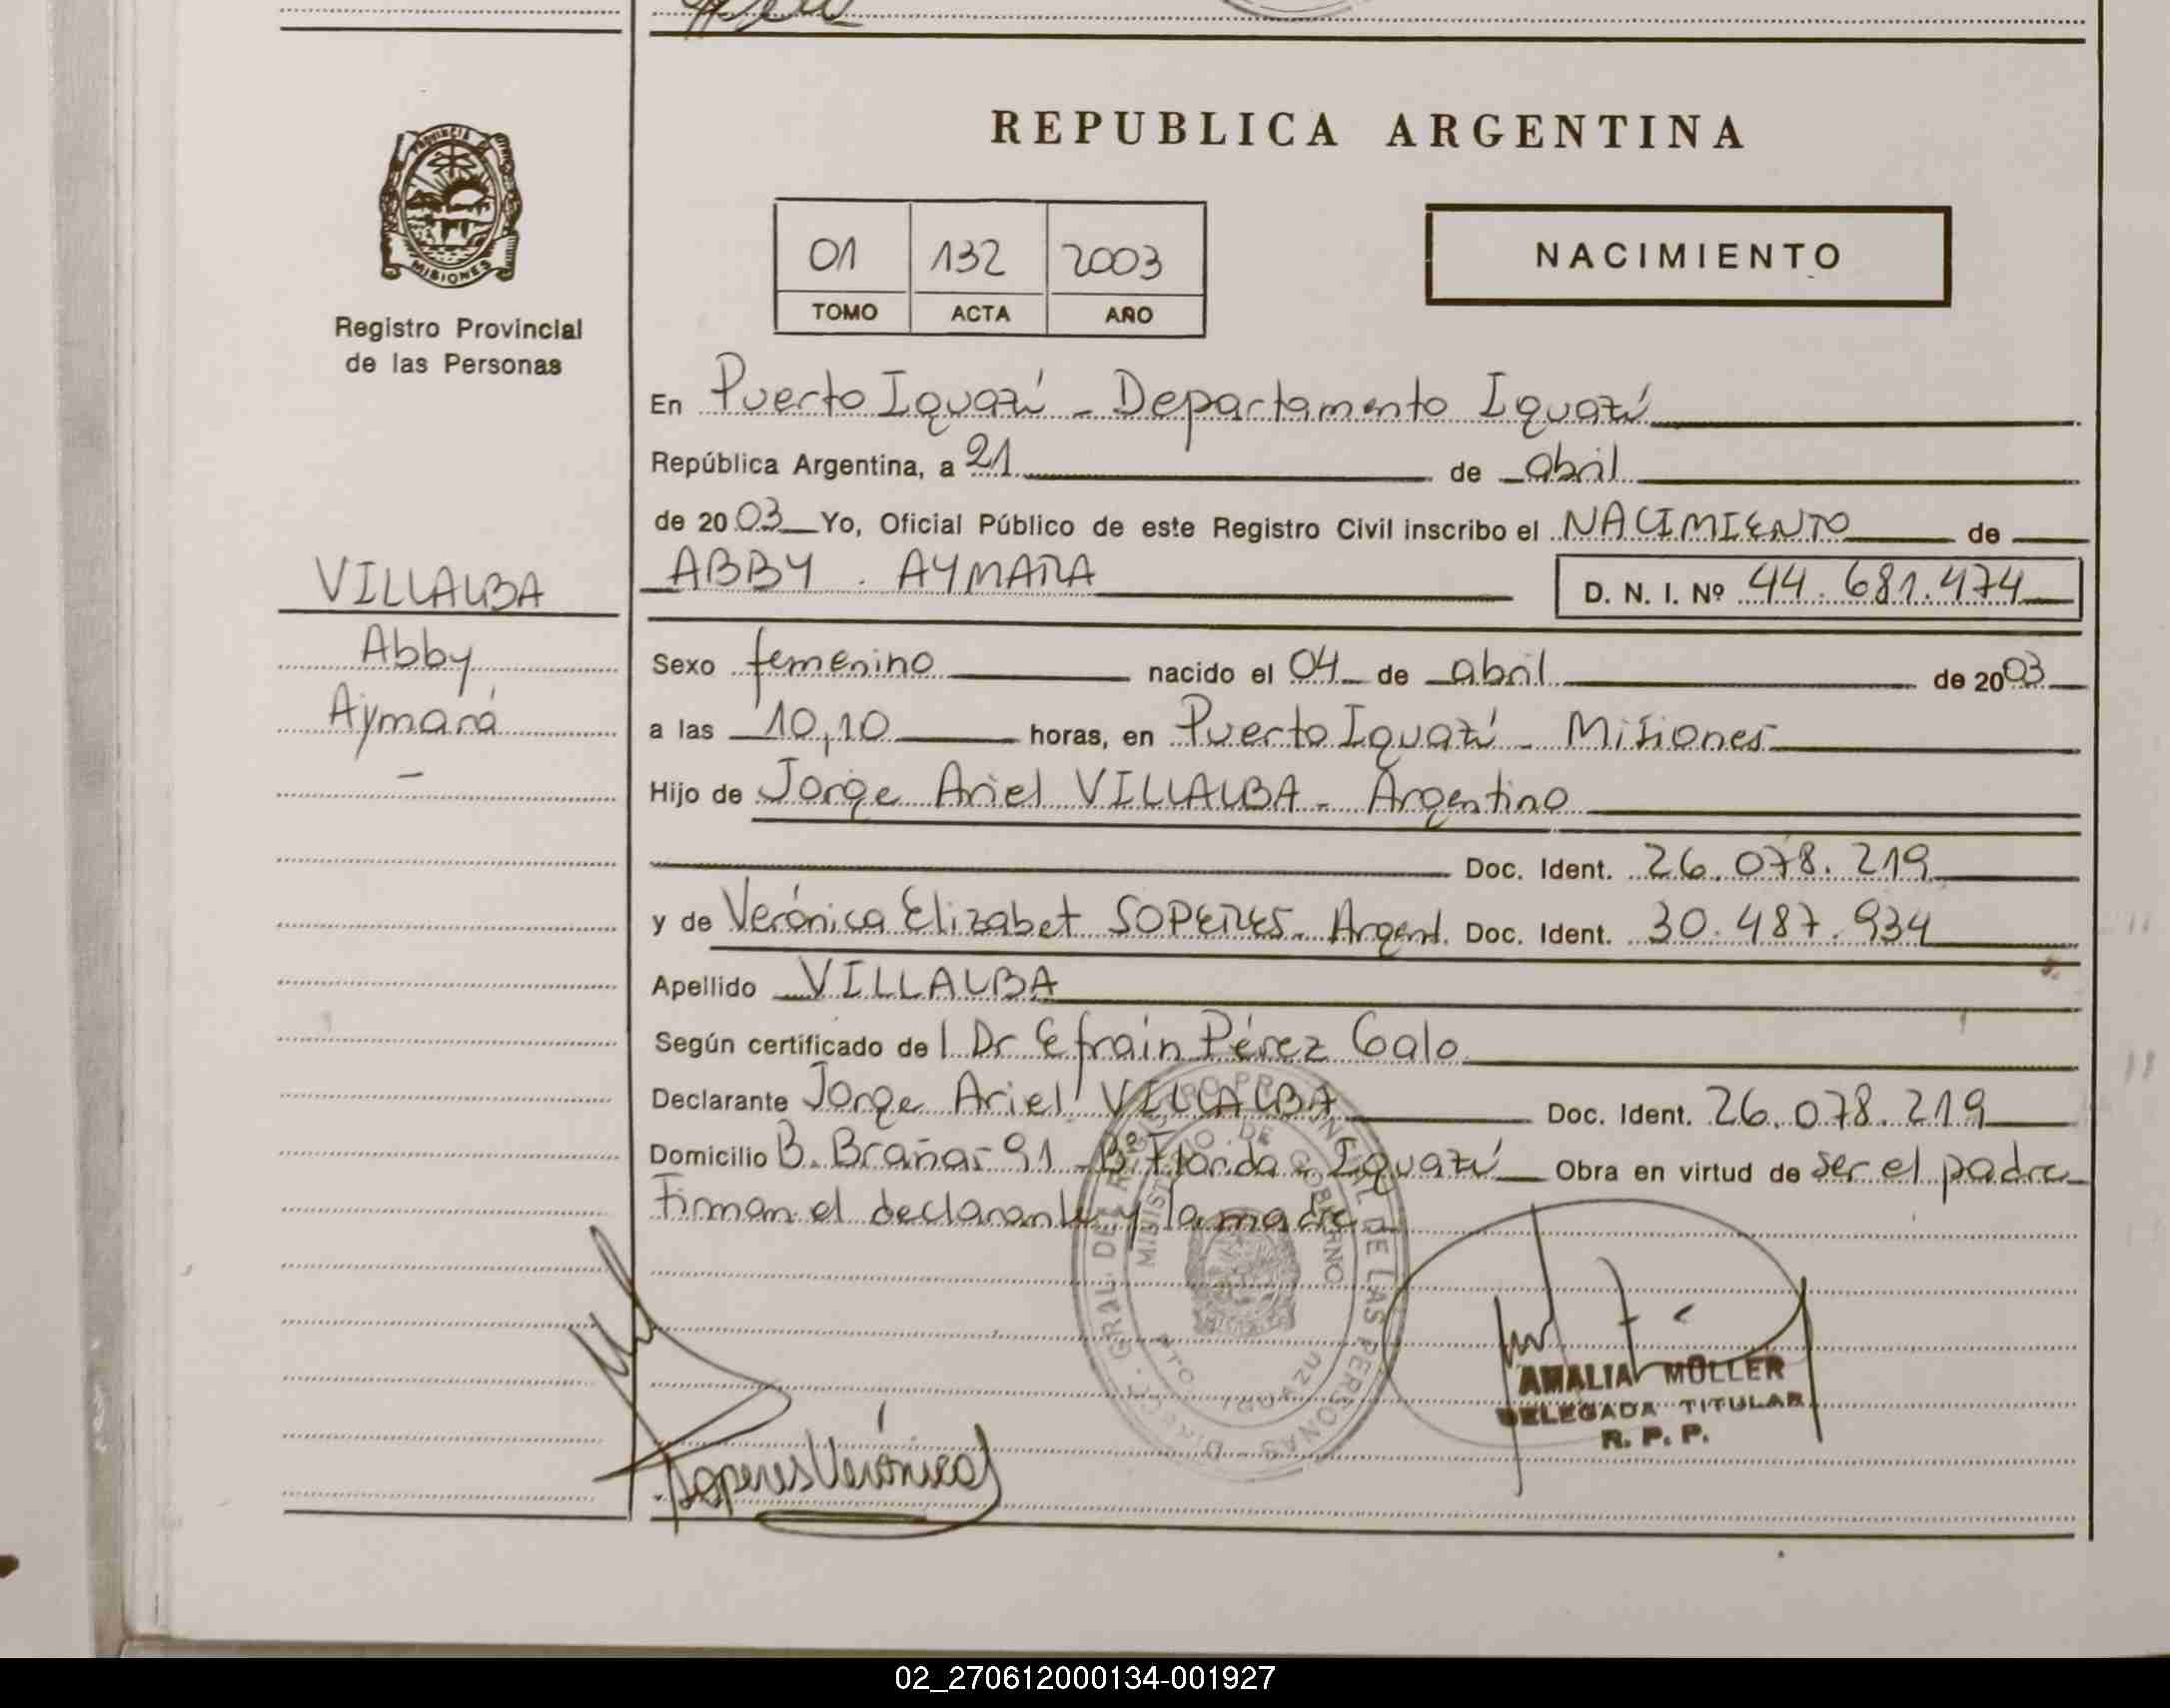 REPUBLICA ARGENTINA
PROVINCIA
MISIONES
Registro Provincial
de las Personas
01 132 2003
TOMO ACTA AÑO
NACIMIENTO
En Puerto Iguazú - Departamento Iguazú
República Argentina, a 21 de abril
de 2003 Yo, Oficial Público de este Registro Civil inscribo el NACIMIENTO de
ABBY . AYMARA D. N. I. Nº 44.681.474
VILLALBA
Abby
Aymará
Sexo femenino nacido el 04 de abril de 2003
a las 10,10 horas, en Puerto Iguazú - Misiones
Hijo de Jorge Ariel VILLALBA - Argentino
Doc. Ident. 26.078.219
y de Verónica Elizabet SOPERES - Argent. Doc. Ident. 30.487.934
Apellido VILLALBA
Según certificado del Dr Efraín Pérez Galo
Declarante Jorge Ariel VILLALBA Doc. Ident. 26.078.219
Domicilio B. Brañas 91 - Bº Florida - Iguazú Obra en virtud de ser el padre
Firman el declarante y la madre -
DIRECC. GRAL. DEL REGISTRO PROVINCIAL DE LAS PERSONAS
MINISTERIO DE GOBIERNO
PTO. IGUAZU
AMALIA MÜLLER
DELEGADA TITULAR
R. P. P.
Soperes Verónica
02_270612000134-001927